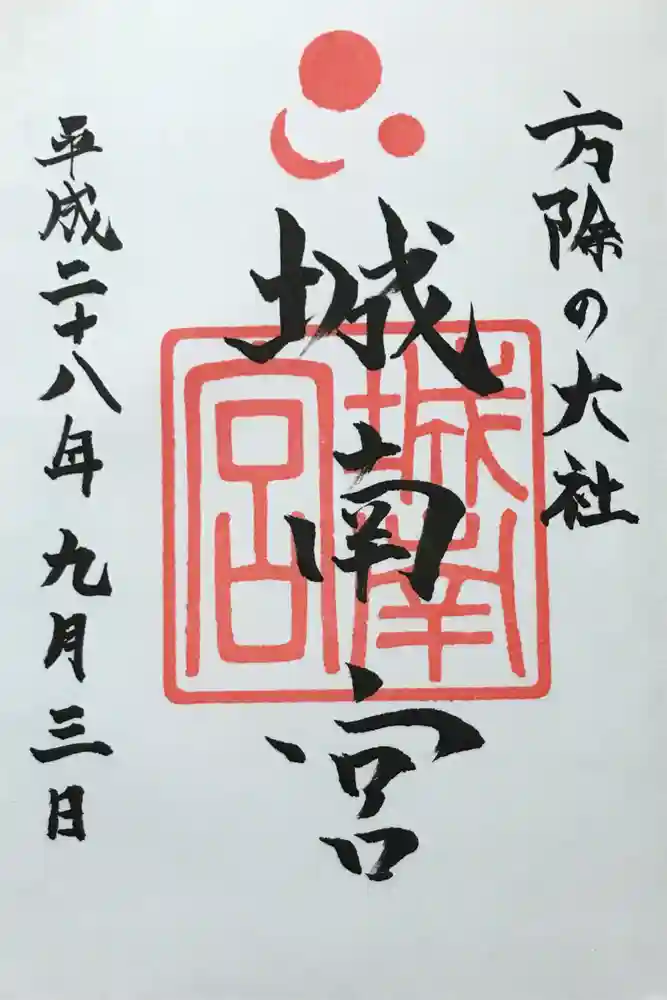 方除の大社
城南宮
城南宮
平成二十八年九月三日